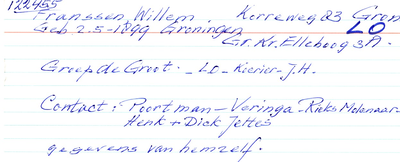 122455
Franssen, Willem. Korreweg 83 Gron
LO
Geb 2.5-1899 Groningen
Gr. Kr. Elleboog 3A.
Groep de Groot. - LO - Kierier - J.H.
Contact: Poortman - Veringa - Rieks Molenaar -
Henk + Dick Jettes
gegevens van hemzelf.